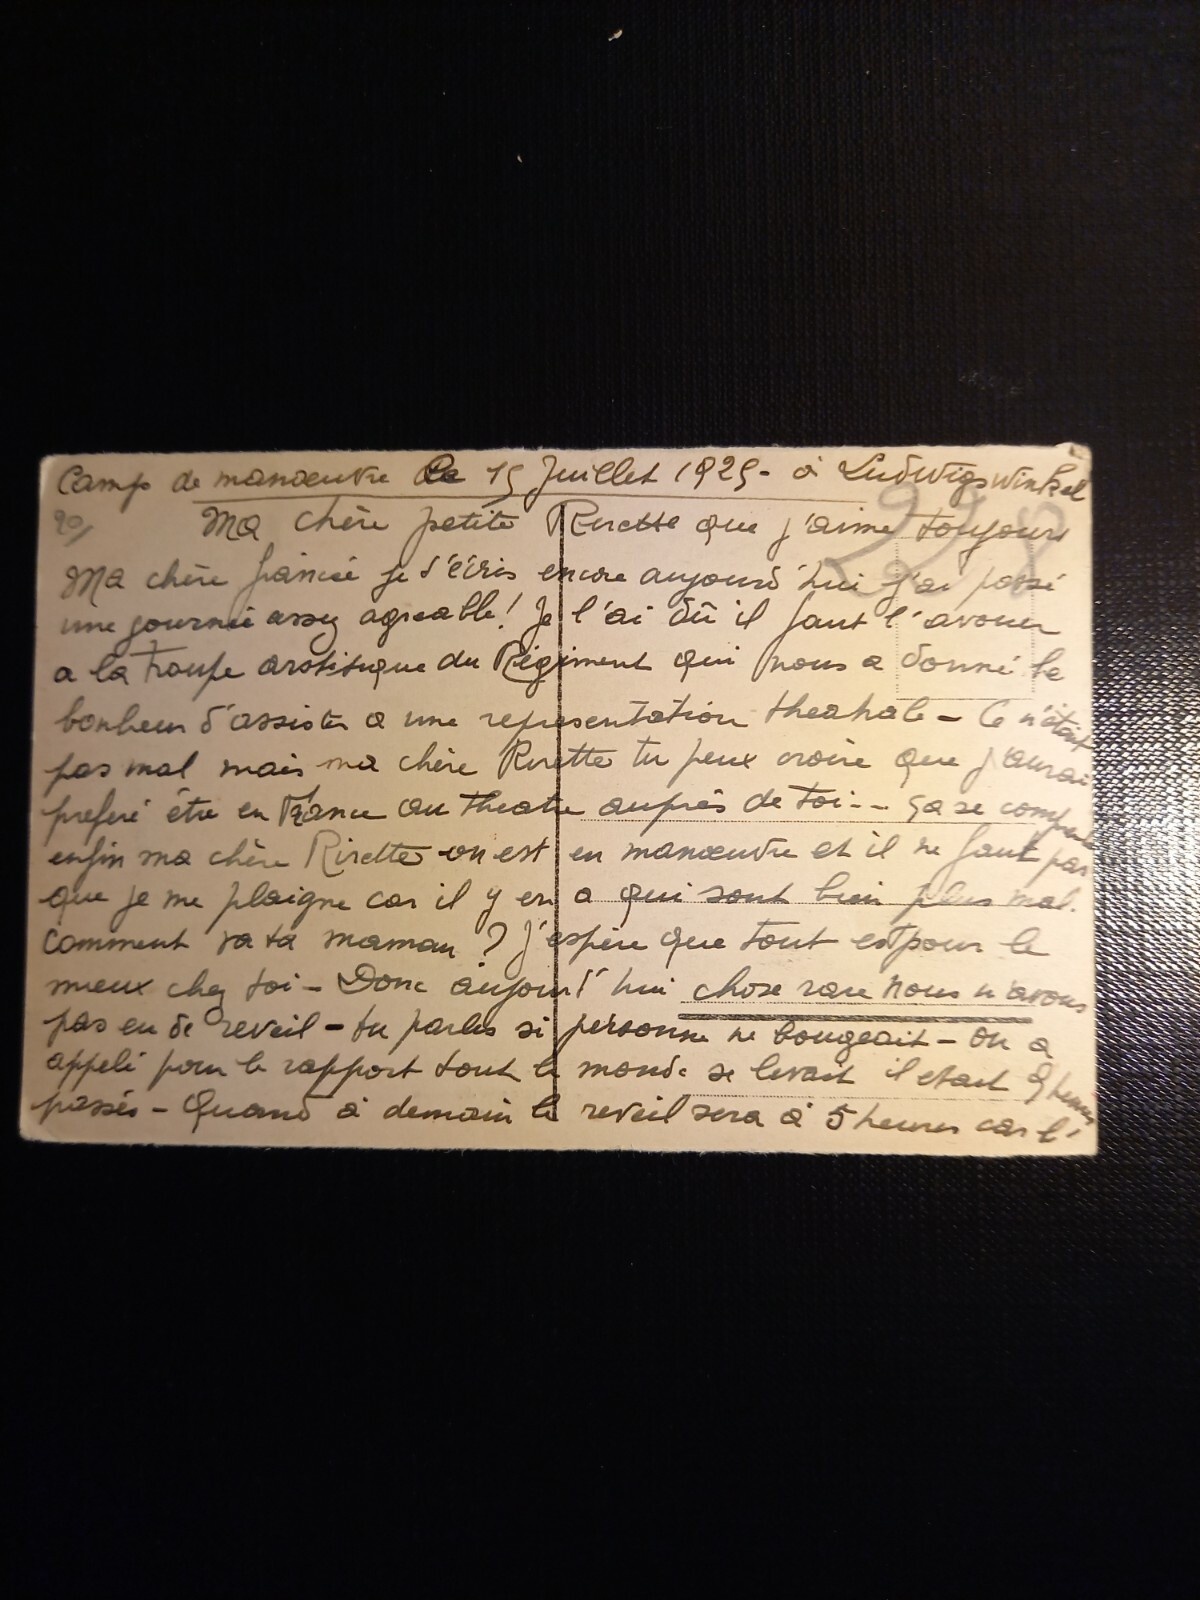 Camp de manœuvre le 15 Juillet 1925 - à Ludwigswinkel
20/ Ma chère petite Rirette que j'aime toujours
Ma chère fiancée je t'écris encore aujourd'hui j'ai passé
une journée assez agreable! Je l'ai dû il faut l'avouer
a la troupe artistique du Régiment qui nous a donné le
bonheur d'assister a une representation theatrale - Ce n'était
pas mal mais ma chère Rirette tu peux croire que j'aurai
preferé être en France au theatre auprès de toi -- ça se comprend
enfin ma chère Rirette on est en manœuvre et il ne faut pas
que je me plaigne car il y en a qui sont bien plus mal.
Comment va ta maman ? J'espère que tout est pour le
mieux chez toi - Donc aujourd'hui chose rare nous n'avons
pas eu de reveil - tu parles si personne ne bougeait - On a
appelé pour le rapport tout le monde se levait il etait 9 heures
passés - Quand à demain le reveil sera à 5 heures car l'